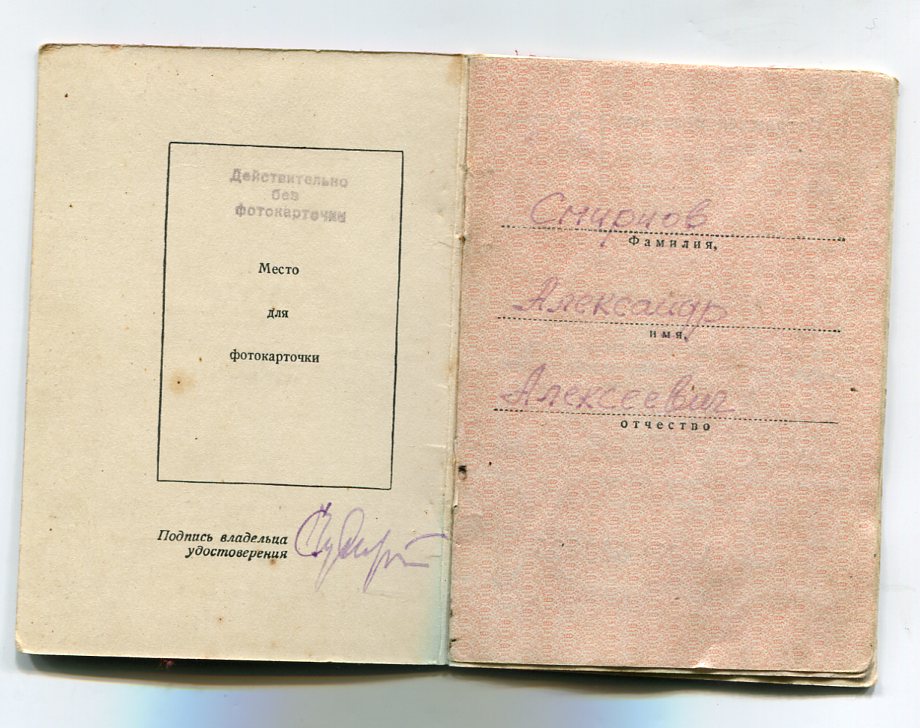 Действительно
без
фотокарточки
Место
для
фотокарточки
Подпись владельца
удостоверения
Смирнов
Фамилия,
Александр
имя,
Алексеевич
отчество